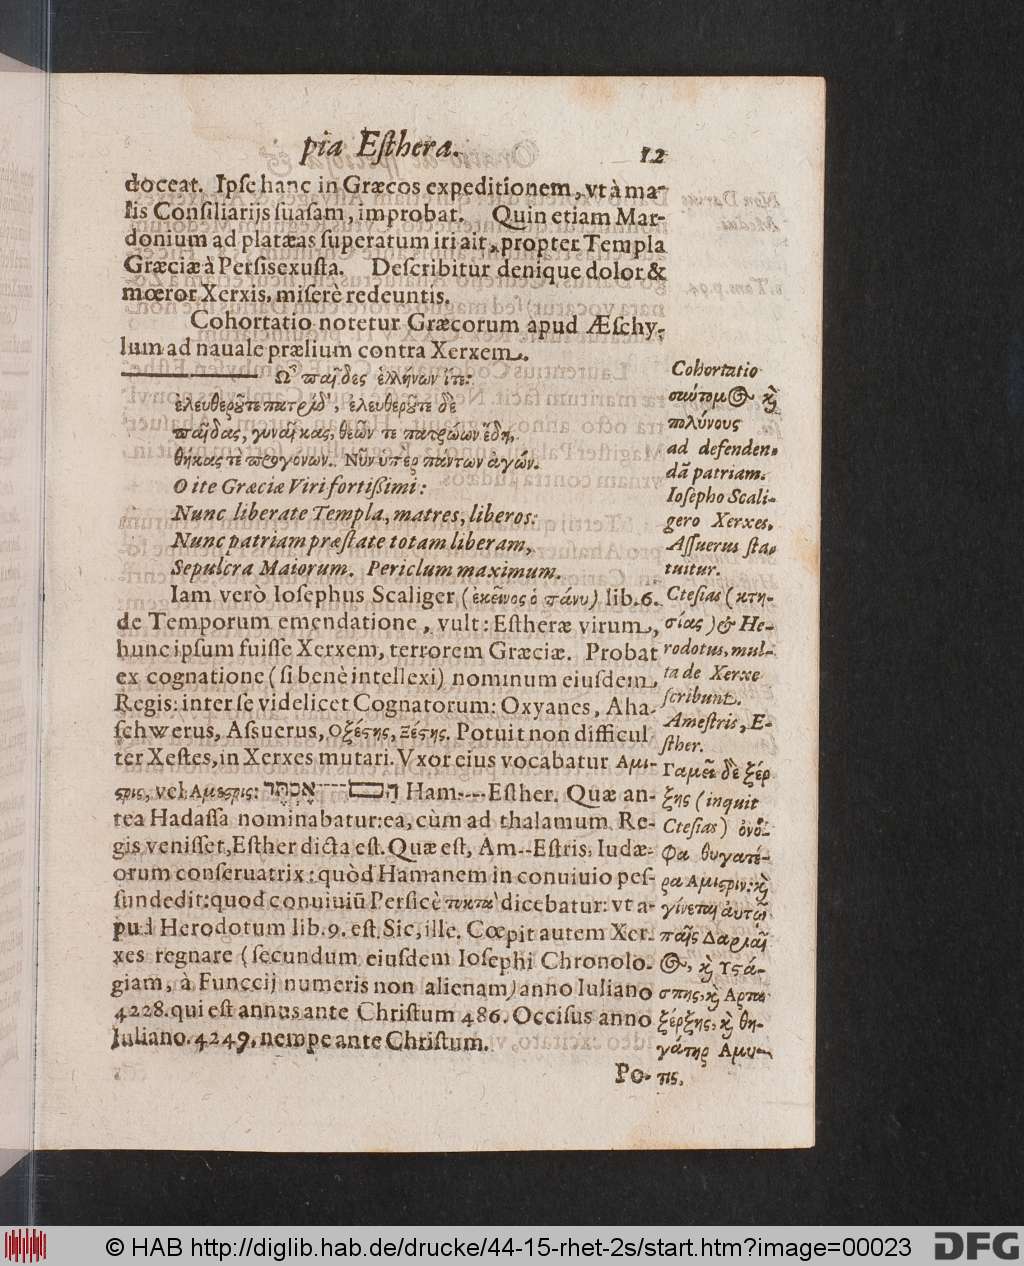 pia Eſthera.
12
doceat. Ipſe hanc in Græcos expeditionem, vt à ma-
lis Conſiliarijs ſuaſam, improbat. Quin etiam Mar-
donium ad platæas ſuperatum iri ait, propter Templa
Græciæ à Persis exuſta. Deſcribitur denique dolor &
mœror Xerxis, miſerè redeuntis.
Cohortatio notetur Græcorum apud Æſchy-
lum ad nauale prælium contra Xerxem.
Ὦ παῖδες ἑλλήνων ἴτε:
ἐλευθεροῦτε πατρίδ', ἐλευθεροῦτε δὲ
παῖδας, γυναῖκας, θεῶν τε πατρώων ἕδη,
θήκας τὲ προγονων. Νῦν υπὲρ πάντων ἀγών.
O ite Græciæ Viri fortißimi:
Nunc liberate Templa, matres, liberos:
Nunc patriam præſtate totam liberam,
Sepulcra Maiorum. Periclum maximum.
Iam verò Ioſephus Scaliger (ἐκεῖνος ὁ πάνυ) lib. 6.
de Temporum emendatione, vult: Eſtheræ virum,
hunc ipſum fuiſſe Xerxem, terrorem Græciæ. Probat
ex cognatione (ſi benè intellexi) nominum eiuſdem
Regis: inter ſe videlicet Cognatorum: Oxyanes, Aha-
ſchwerus, Aſſuerus, Οξέστης, Ξέστης. Potuit non difficul
ter Xeſtes, in Xerxes mutari. Vxor eius vocabatur Αμι-
στρις, vel Αμεστρις: הם----אסתר Ham----Eſther. Quæ an-
tea Hadaſſa nominabatur: ea, cùm ad thalamum Re-
gis veniſſet, Eſther dicta eſt. Quæ eſt, Am--Eſtris, Iudæ-
orum conſeruatrix: quòd Hamanem in conuiuio peſ-
ſundedit: quod conuiuiū Perſicè τυκτα' dicebatur: vt a-
pud Herodotum lib. 9. eſt. Sic, ille. Cœpit autem Xer-
xes regnare (ſecundum eiuſdem Ioſephi Chronolo-
giam, à Funccij numeris non alienam) anno Iuliano
4228. qui eſt annus ante Chriſtum 486. Occiſus anno
Iuliano. 4249. nempe ante Chriſtum.
Po-
Cohortatio
σύντομος καὶ
πολύνους
ad defenden-
dā patriam.
Ioſepho Scali-
gero Xerxes,
Aſſuerus ſta-
tuitur.
Cteſias (κτη-
σίας) & He-
rodotus, mul-
ta de Xerxe
ſcribunt.
Ameſtris, E-
ſther.
Γαμεῖ δὲ ξέρ
ξης (inquit
Cteſias) ὀνό-
Φα θυγατέ-
ρα Αμιςριν: καὶ
γίνεται αὐτῶ
παῖς Δαρεῖ
ος, καὶ Υστά-
σπης, καὶ Αρτα
ξέρξης, καὶ θη-
γάτηρ Αμυ-
τις.
© HAB http://diglib.hab.de/drucke/44-15-rhet-2s/start.htm?image=00023
DFG